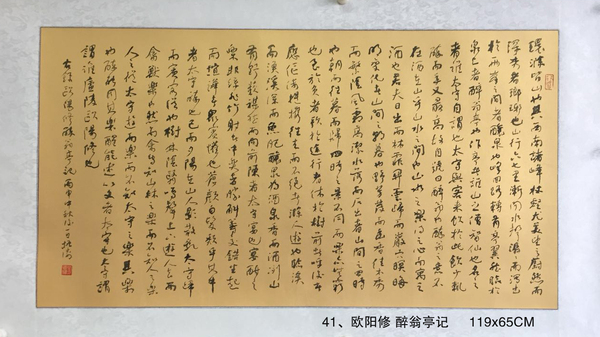 環滁皆山也其西南諸峰林壑尤美望之蔚然而
深秀者瑯琊也山行六七里漸聞水聲潺潺而瀉出
於兩峰之間者釀泉也峰回路轉有亭翼然臨於
泉上者醉翁亭也作亭者誰山之僧智仙也名之
者誰太守自謂也太守與客來飲於此飲少輒
醉而年又最高故自號曰醉翁也醉翁之意不
在酒在乎山水之間也山水之樂得之心而寓之
酒也若夫日出而林霏開雲歸而巖穴暝晦
明變化者山間之朝暮也野芳發而幽香佳木秀
而繁陰風霜高潔水落而石出者山間之四時
也朝而往暮而歸四時之景不同而樂亦無窮
也至於負者歌於途行者休於樹前者呼後者
應傴僂提攜往來而不絕者滁人遊也臨溪
而漁溪深而魚肥釀泉為酒泉香而酒洌山
肴野蔌雜然而前陳者太守宴也宴酣之
樂非絲非竹射者中弈者勝觥籌交錯坐起
而諠譁者眾賓懽也蒼顏白髮頹乎其中
者太守醉也已而夕陽在山人影散亂太守歸
而賓客從也樹林陰翳鳴聲上下遊人去而
禽鳥樂也然而禽鳥知山林之樂而不知人之樂
人知從太守遊而樂而不知太守之樂其樂
也醉能同其樂醒能述以文者太守也太守謂
誰廬陵歐陽修也
歐陽修醉翁亭記丙申
41、欧阳修 醉翁亭记 119x65CM